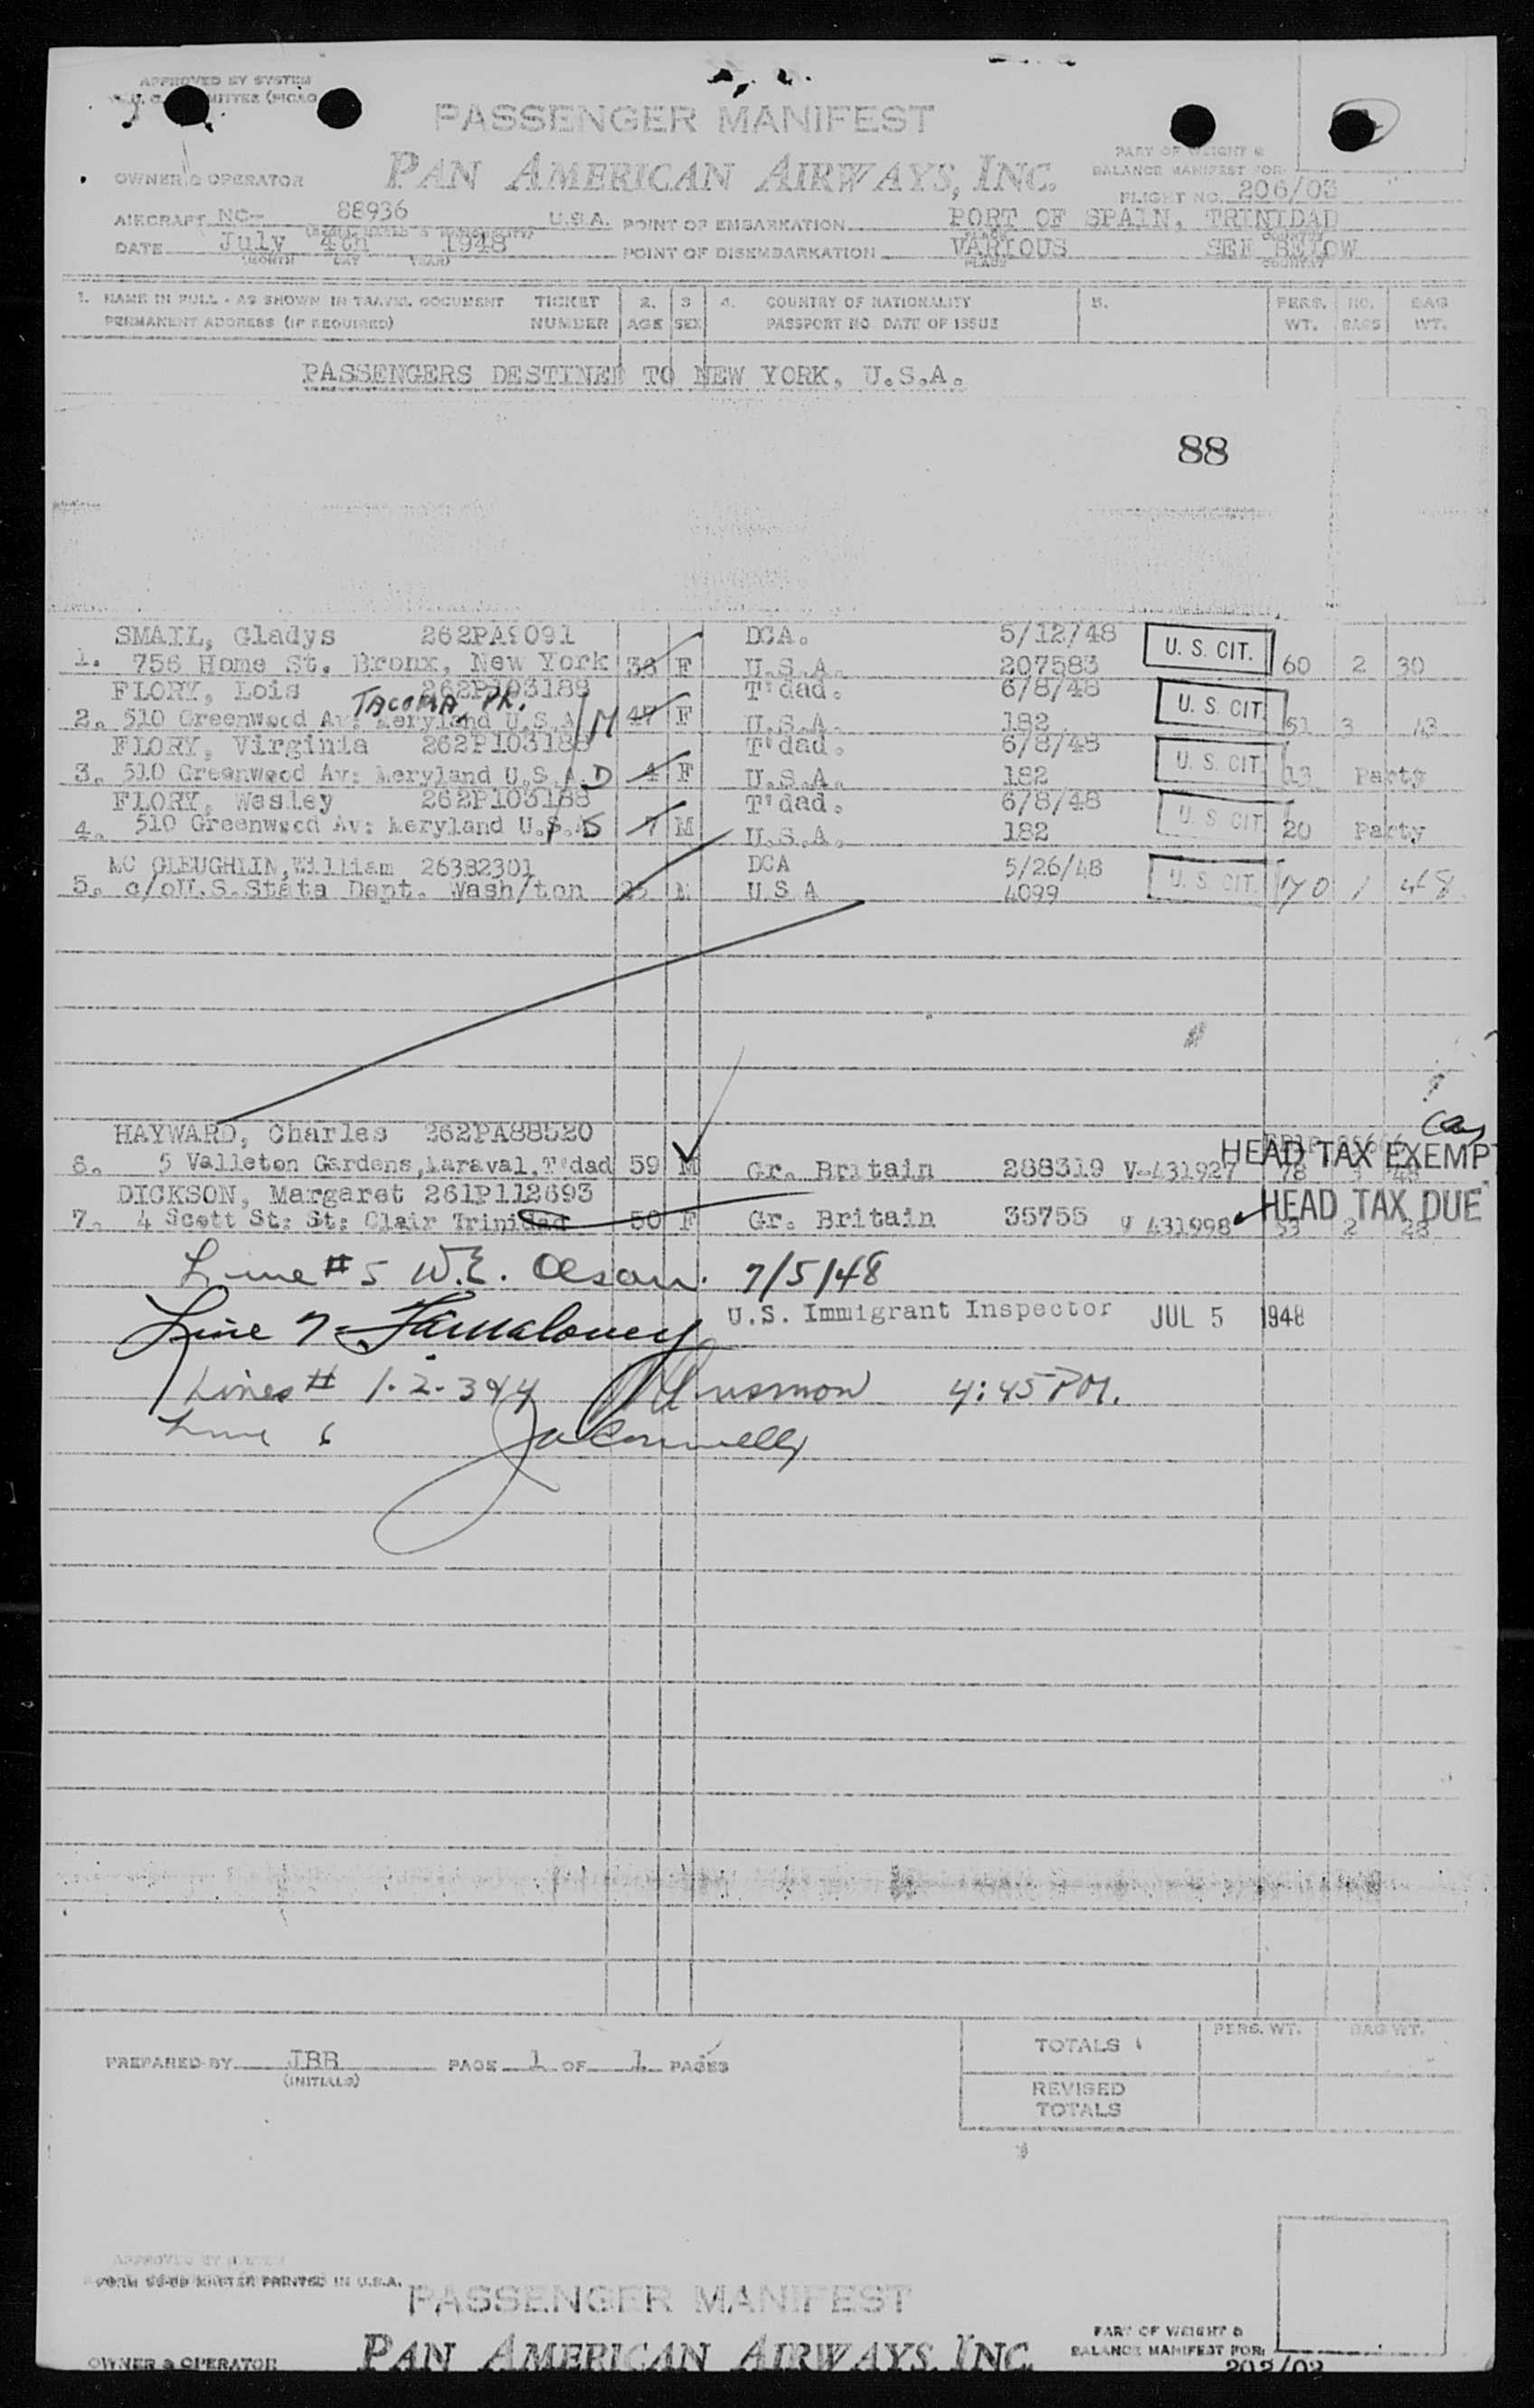 APPROVED BY SYSTEM
PASSENGER MANIFEST
PAN AMERICAN AIRWAYS, INC.
PART OF WEIGHT &
BALANCE MANIFEST FOR
OWNER & OPERATOR
FLIGHT NO. 206/03
AIRCRAFT NC- 88936 U.S.A. POINT OF EMBARKATION PORT OF SPAIN, TRINIDAD
DATE July 4th 1948 POINT OF DISEMBARKATION VARIOUS SEE BELOW
(MONTH DAY YEAR) PLACE COUNTRY
1. NAME IN FULL - AS SHOWN IN TRAVEL DOCUMENT TICKET 2. 3 4. COUNTRY OF NATIONALITY 5. PERS. NO. BAG
PERMANENT ADDRESS (IF REQUIRED) NUMBER AGE SEX PASSPORT NO DATE OF ISSUE WT. BAGS WT.
PASSENGERS DESTINED TO NEW YORK, U.S.A.
88
SMAIL, Gladys 262PA9091 DCA. 5/12/48 U. S. CIT.
1. 756 Home St. Bronx, New York 36 F U.S.A. 207583 60 2 30
FLORY, Lois 262P103188 T'dad. 6/8/48 U. S. CIT.
TACOMA PK.
2. 510 Greenwood Av: Meryland U.S.A M 47 F U.S.A. 182 51 3 43
FLORY, Virginia 262P103188 T'dad. 6/8/48 U. S. CIT.
3. 510 Greenwood Av: Meryland U.S.A. D 4 F U.S.A. 182 13 Party
FLORY, Wesley 262P103188 T'dad. 6/8/48 U. S. CIT.
4. 510 Greenwood Av: Meryland U.S. S 7 M U.S.A. 182 20 Party
MC GLEUGHLIN, William 26382301 DCA 5/26/48 U. S. CIT.
5. c/oU.S.State Dept. Wash/ton 25 M U.S.A 4099 70 1 48
HAYWARD, Charles 262PA88520
HEAD TAX EXEMP
6. 5 Valleton Gardens, Maraval, T'dad 59 M Gr. Britain 288319 V-431927 78
DICKSON, Margaret 261P112693 HEAD TAX DUE
7. 4 Scott St: St: Clair Trinidad 50 F Gr. Britain 35755 V 431998 53 2 28
Line # 5 W.E. Olson. 7/5/48
U.S. Immigrant Inspector JUL 5 1948
Line 7
Lines # 1. 2. 3 & 4 4:45 PM.
Line 6
PREPARED BY JBB PAGE 1 OF 1 PAGES
(INITIALS)
TOTALS PERS. WT. BAG WT.
REVISED
TOTALS
PRINTED IN U.S.A.
PASSENGER MANIFEST
PAN AMERICAN AIRWAYS, INC.
PART OF WEIGHT &
BALANCE MANIFEST FOR:
OWNER & OPERATOR